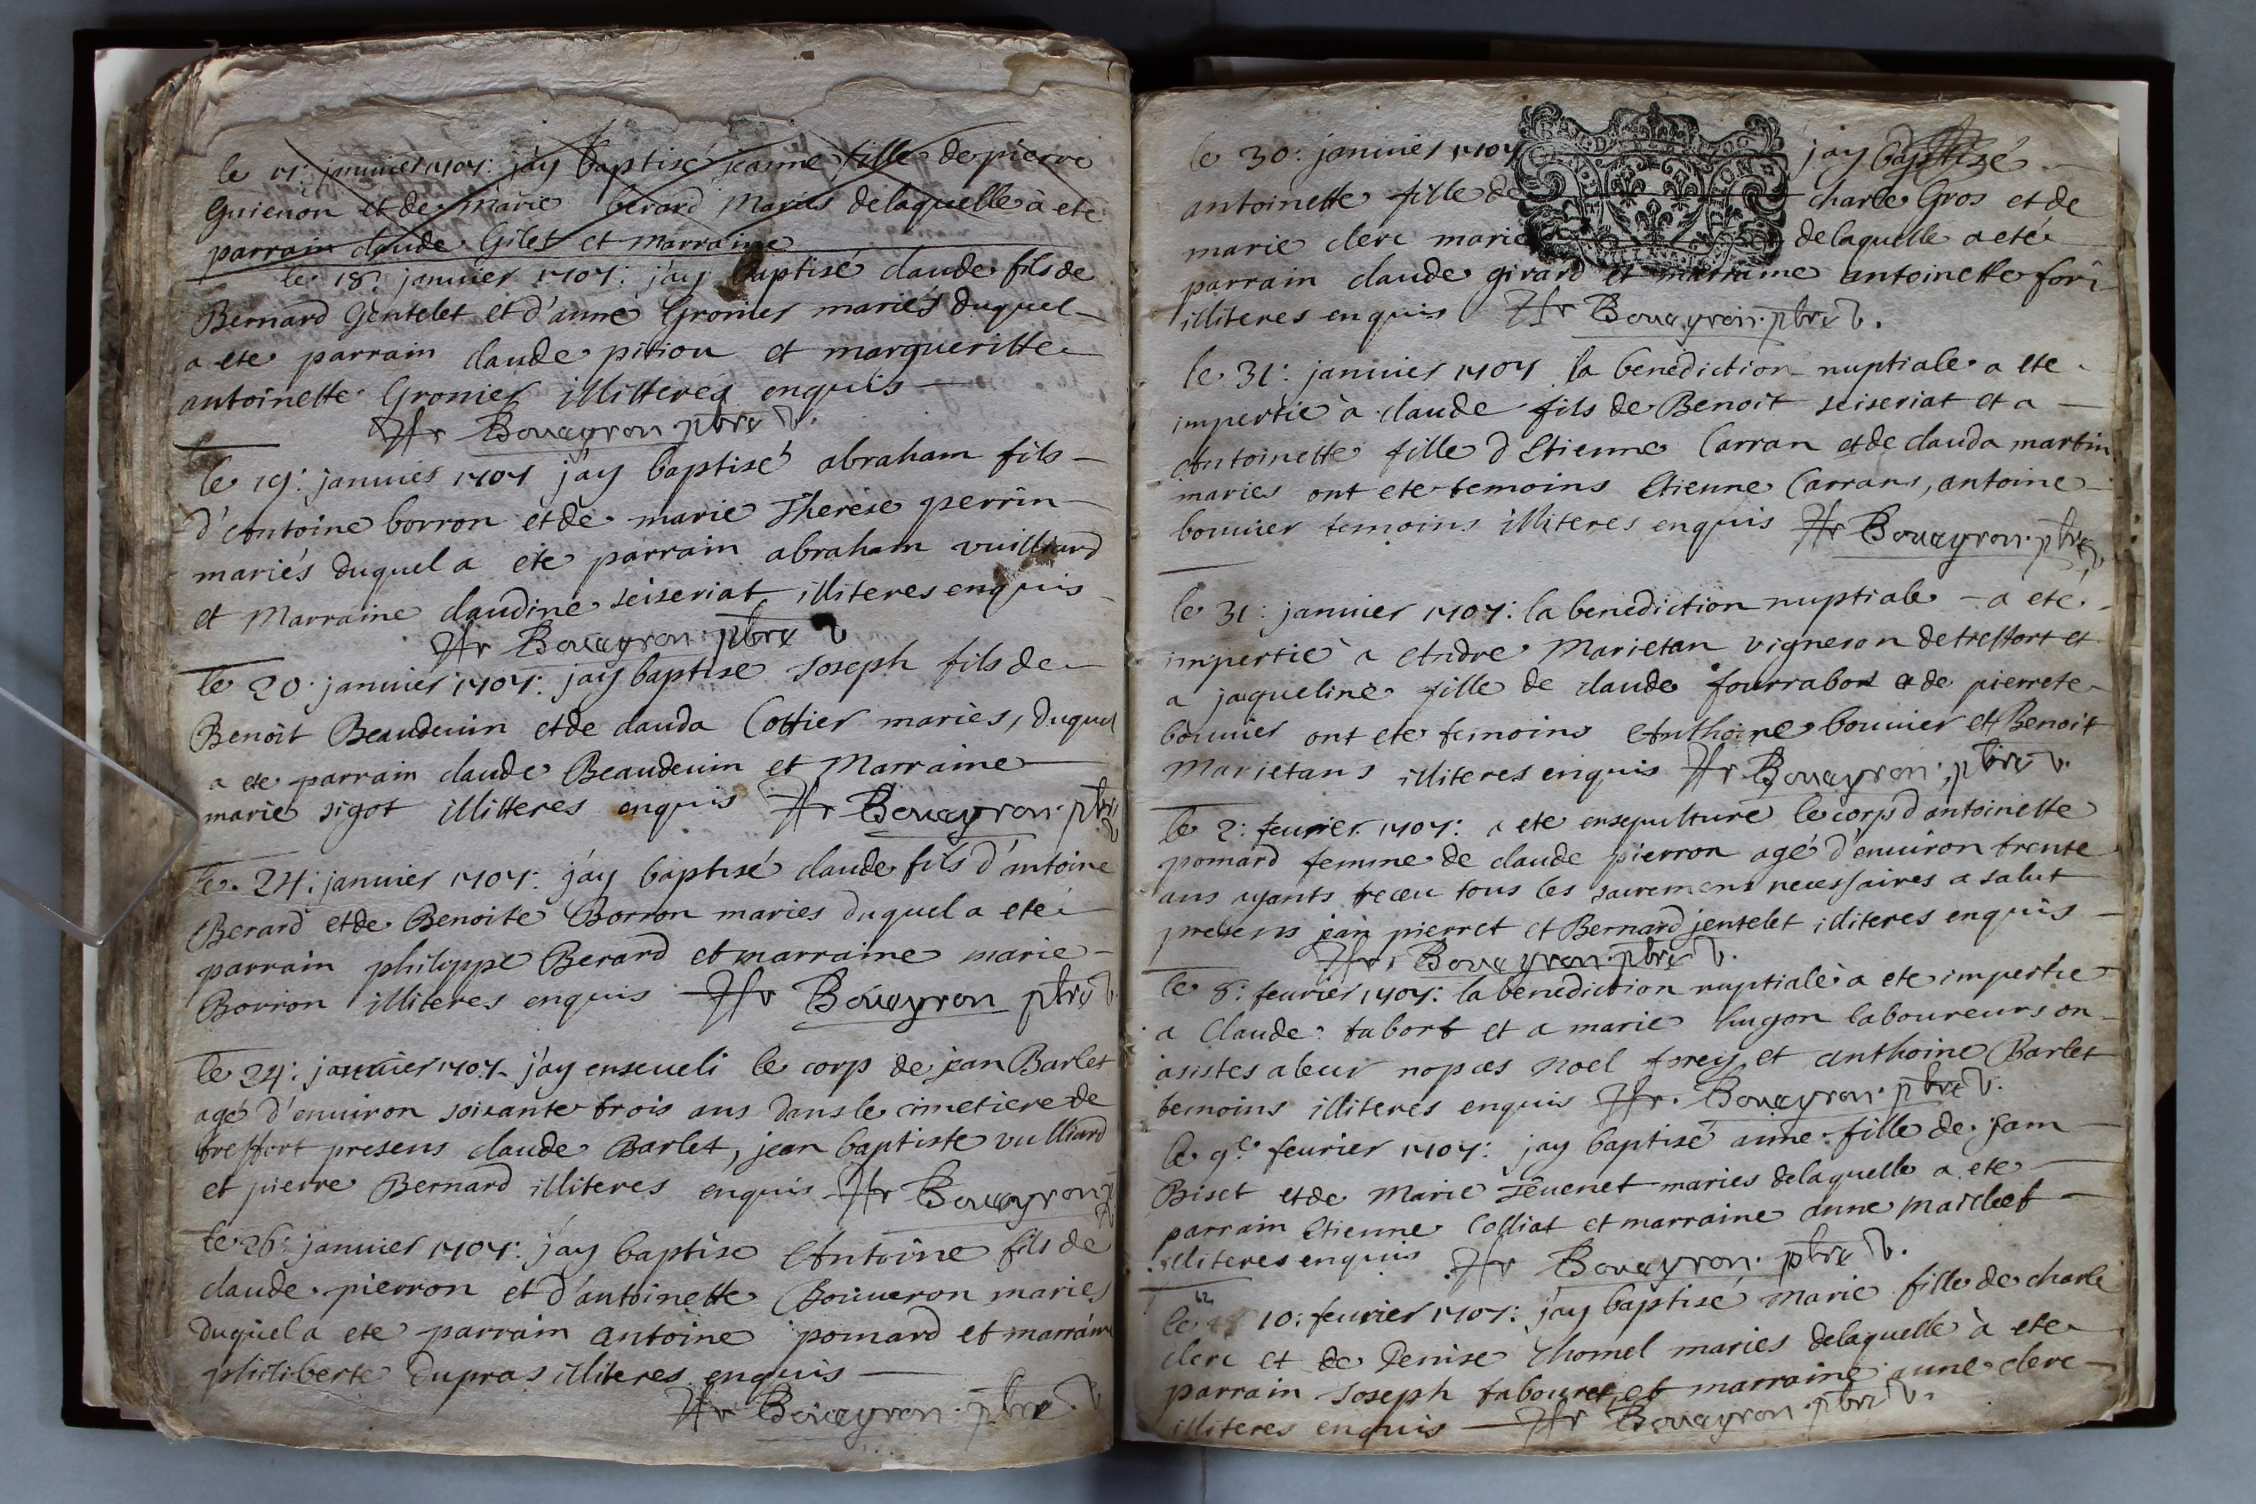 le 17: januier 1707: j'ay baptisé jeanne fille de pierre
Guienon et de marie berard Mariés delaquelle à ete
parrain claude Gilet et marraine
le 18: januier 1707: j'ay baptisé claude fils de
Bernard Gentelet et d'anne Gronier mariés duquel
a ete parrain claude pitiou et margueritte
antoinette Gronier illitteres enquis
Hr Boueyron ptre V.
le 19: januier 1707 j'ay baptisé abraham fils
d'antoine borron et de marie Therese perrin
mariés duquel a ete parrain abraham vuilliard
et Marraine claudine seiseriat illiteres enquis
Hr Boueyron ptre V
le 20: januier 1707: j'ay baptisé Joseph fils de
Benoit Beaudeuin et de clauda Cottier mariés, duquel
a ete parrain claude Beaudeuin et Marraine
marie sigot illitteres enquis Hr Boueyron ptre V
le 24: januier 1707: j'ay baptisé claude fils d'antoine
Berard et de Benoite Borron maries duquel a eté
parrain philippe Berard et marraine marie
Borron illiteres enquis Hr Boueyron ptre V.
le 24: januier 1707 j'ay enseueli le corp de jean Barlet
agé d'enuiron soixante trois ans dans le cimetiere de
treffort presens claude Barlet, jean baptiste vulliard
et pierre Bernard illiteres enquis Hr Boueyron
le 26: januier 1707: j'ay baptisé Antoine fils de
claude pierron et d'antoinette Bouueron maries
duquel a ete parrain antoine pomard et marraine
philiberte Dupras illiteres enquis
Hr Boueyron ptre V
le 30: januier 1707 jay baptisé
antoinette fille de charle Gros et de
marie clerc mariés delaquelle a eté
parrain claude girard et marraine antoinette
illiteres enquis Hr Boueyron ptre V.
le 31: januier 1707 la benediction nuptiale a ete
impertie à claude fils de Benoit seiseriat et a
Antoinette fille d'Etienne Carran et de clauda martin
maries ont ete temoins Etienne Carrans, antoine
bouuier temoins illiteres enquis Hr Boueyron ptre V.
le 31: januier 1707: la benediction nuptiale a eté
impertie a Andre Marietan vigneron de treffort et
a jaqueline fille de claude fourrabon et de pierrete
bouuier ont ete temoins Anthoine bouuier et Benoit
Marietans illiteres enquis Hr Boueyron ptre V.
le 2: feurier 1707: a ete ensepulturé le corp d'antoinette
pomard femme de claude pierron agé d'enuiron trente
ans ayants receu tous les sacremens necessaires a salut
presens jean pierret et Bernard jentelet illiteres enquis
Hr Boueyron ptre V.
le 8: feurier 1707: la benediction nuptiale à ete impertie
a Claude tabort et a marie hugon laboureurs on
asistes a leur nopces Noel forey et anthoine Barlet
temoins illiteres enquis Hr. Boueyron ptre V.
le 9e feurier 1707: jay baptisé anne fille de jean
Biset et de Marie Teuenet maries delaquelle a ete
parrain Etienne Colliat et marraine anne marclet
illiteres enquis Hr Boueyron ptre V.
le 10: feurier 1707: j'ay baptisé Marie fille de charle
clerc et de Denise Thomel maries delaquelle à ete
parrain Joseph tabouret et marraine anne clerc
illiteres enquis Hr Boueyron ptre V.